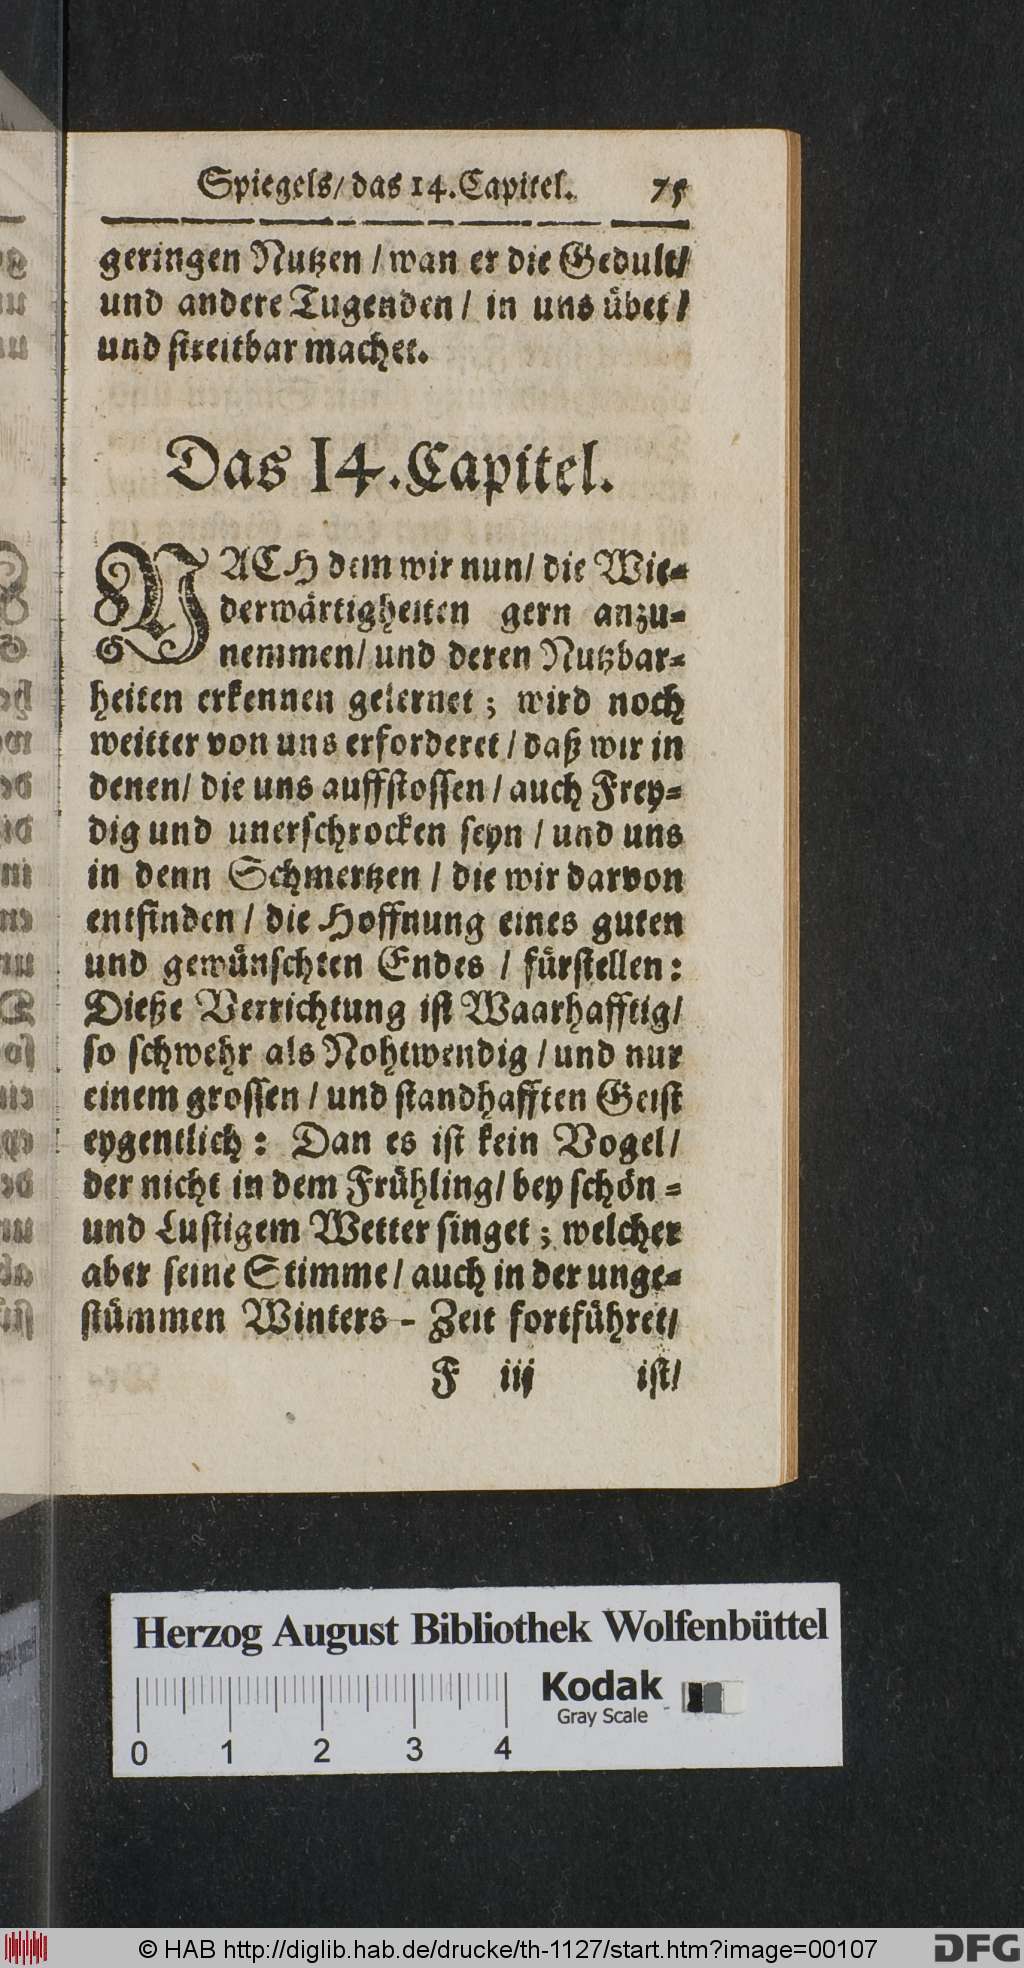 Spiegels/ das 14. Capitel. 75
geringen Nutzen / wan er die Gedult/
und andere Tugenden / in uns übet /
und streitbar machet.
Das 14. Capitel.
NACH dem wir nun/ die Wie-
derwärtigheiten gern anzu-
nemmen/ und deren Nutzbar-
heiten erkennen gelernet ; wird noch
weitter von uns erforderet / daß wir in
denen/ die uns auffstossen / auch Frey-
dig und unerschrocken seyn / und uns
in denn Schmertzen / die wir darvon
entfinden / die Hoffnung eines guten
und gewünschten Endes / fürstellen:
Dieße Verrichtung ist Waarhafftig/
so schwehr als Nohtwendig / und nur
einem grossen / und standhafften Geist
eygentlich : Dan es ist kein Vogel/
der nicht in dem Frühling/ bey schön-
und Lustigem Wetter singet ; welcher
aber seine Stimme / auch in der unge-
stümmen Winters - Zeit fortführet/
F iij ist/
Herzog August Bibliothek Wolfenbüttel
Kodak
Gray Scale
0 1 2 3 4
© HAB http://diglib.hab.de/drucke/th-1127/start.htm?image=00107
DFG